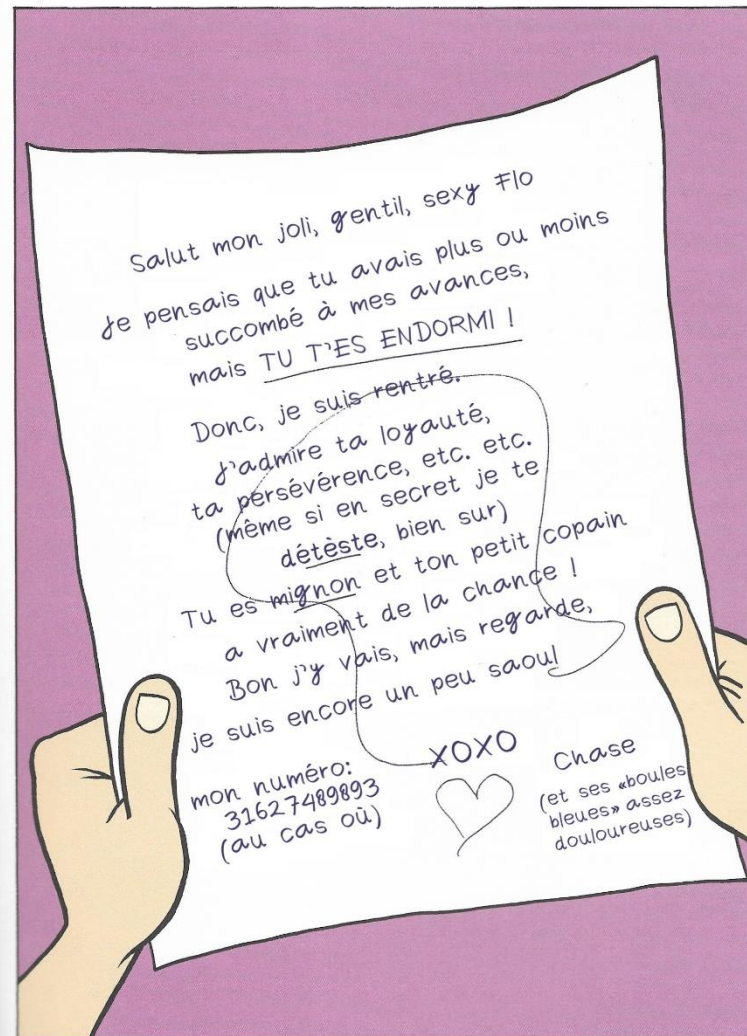 Salut mon joli, gentil, sexy Flo
Je pensais que tu avais plus ou moins
succombé à mes avances,
mais TU T'ES ENDORMI !
Donc, je suis rentré.
J'admire ta loyauté,
ta persévérence, etc. etc.
(même si en secret je te
détèste, bien sur)
Tu es mignon et ton petit copain
a vraiment de la chance !
Bon j'y vais, mais regarde,
je suis encore un peu saoul
XOXO
mon numéro:
31627489893
(au cas où)
Chase
(et ses «boules
bleues» assez
douloureuses)